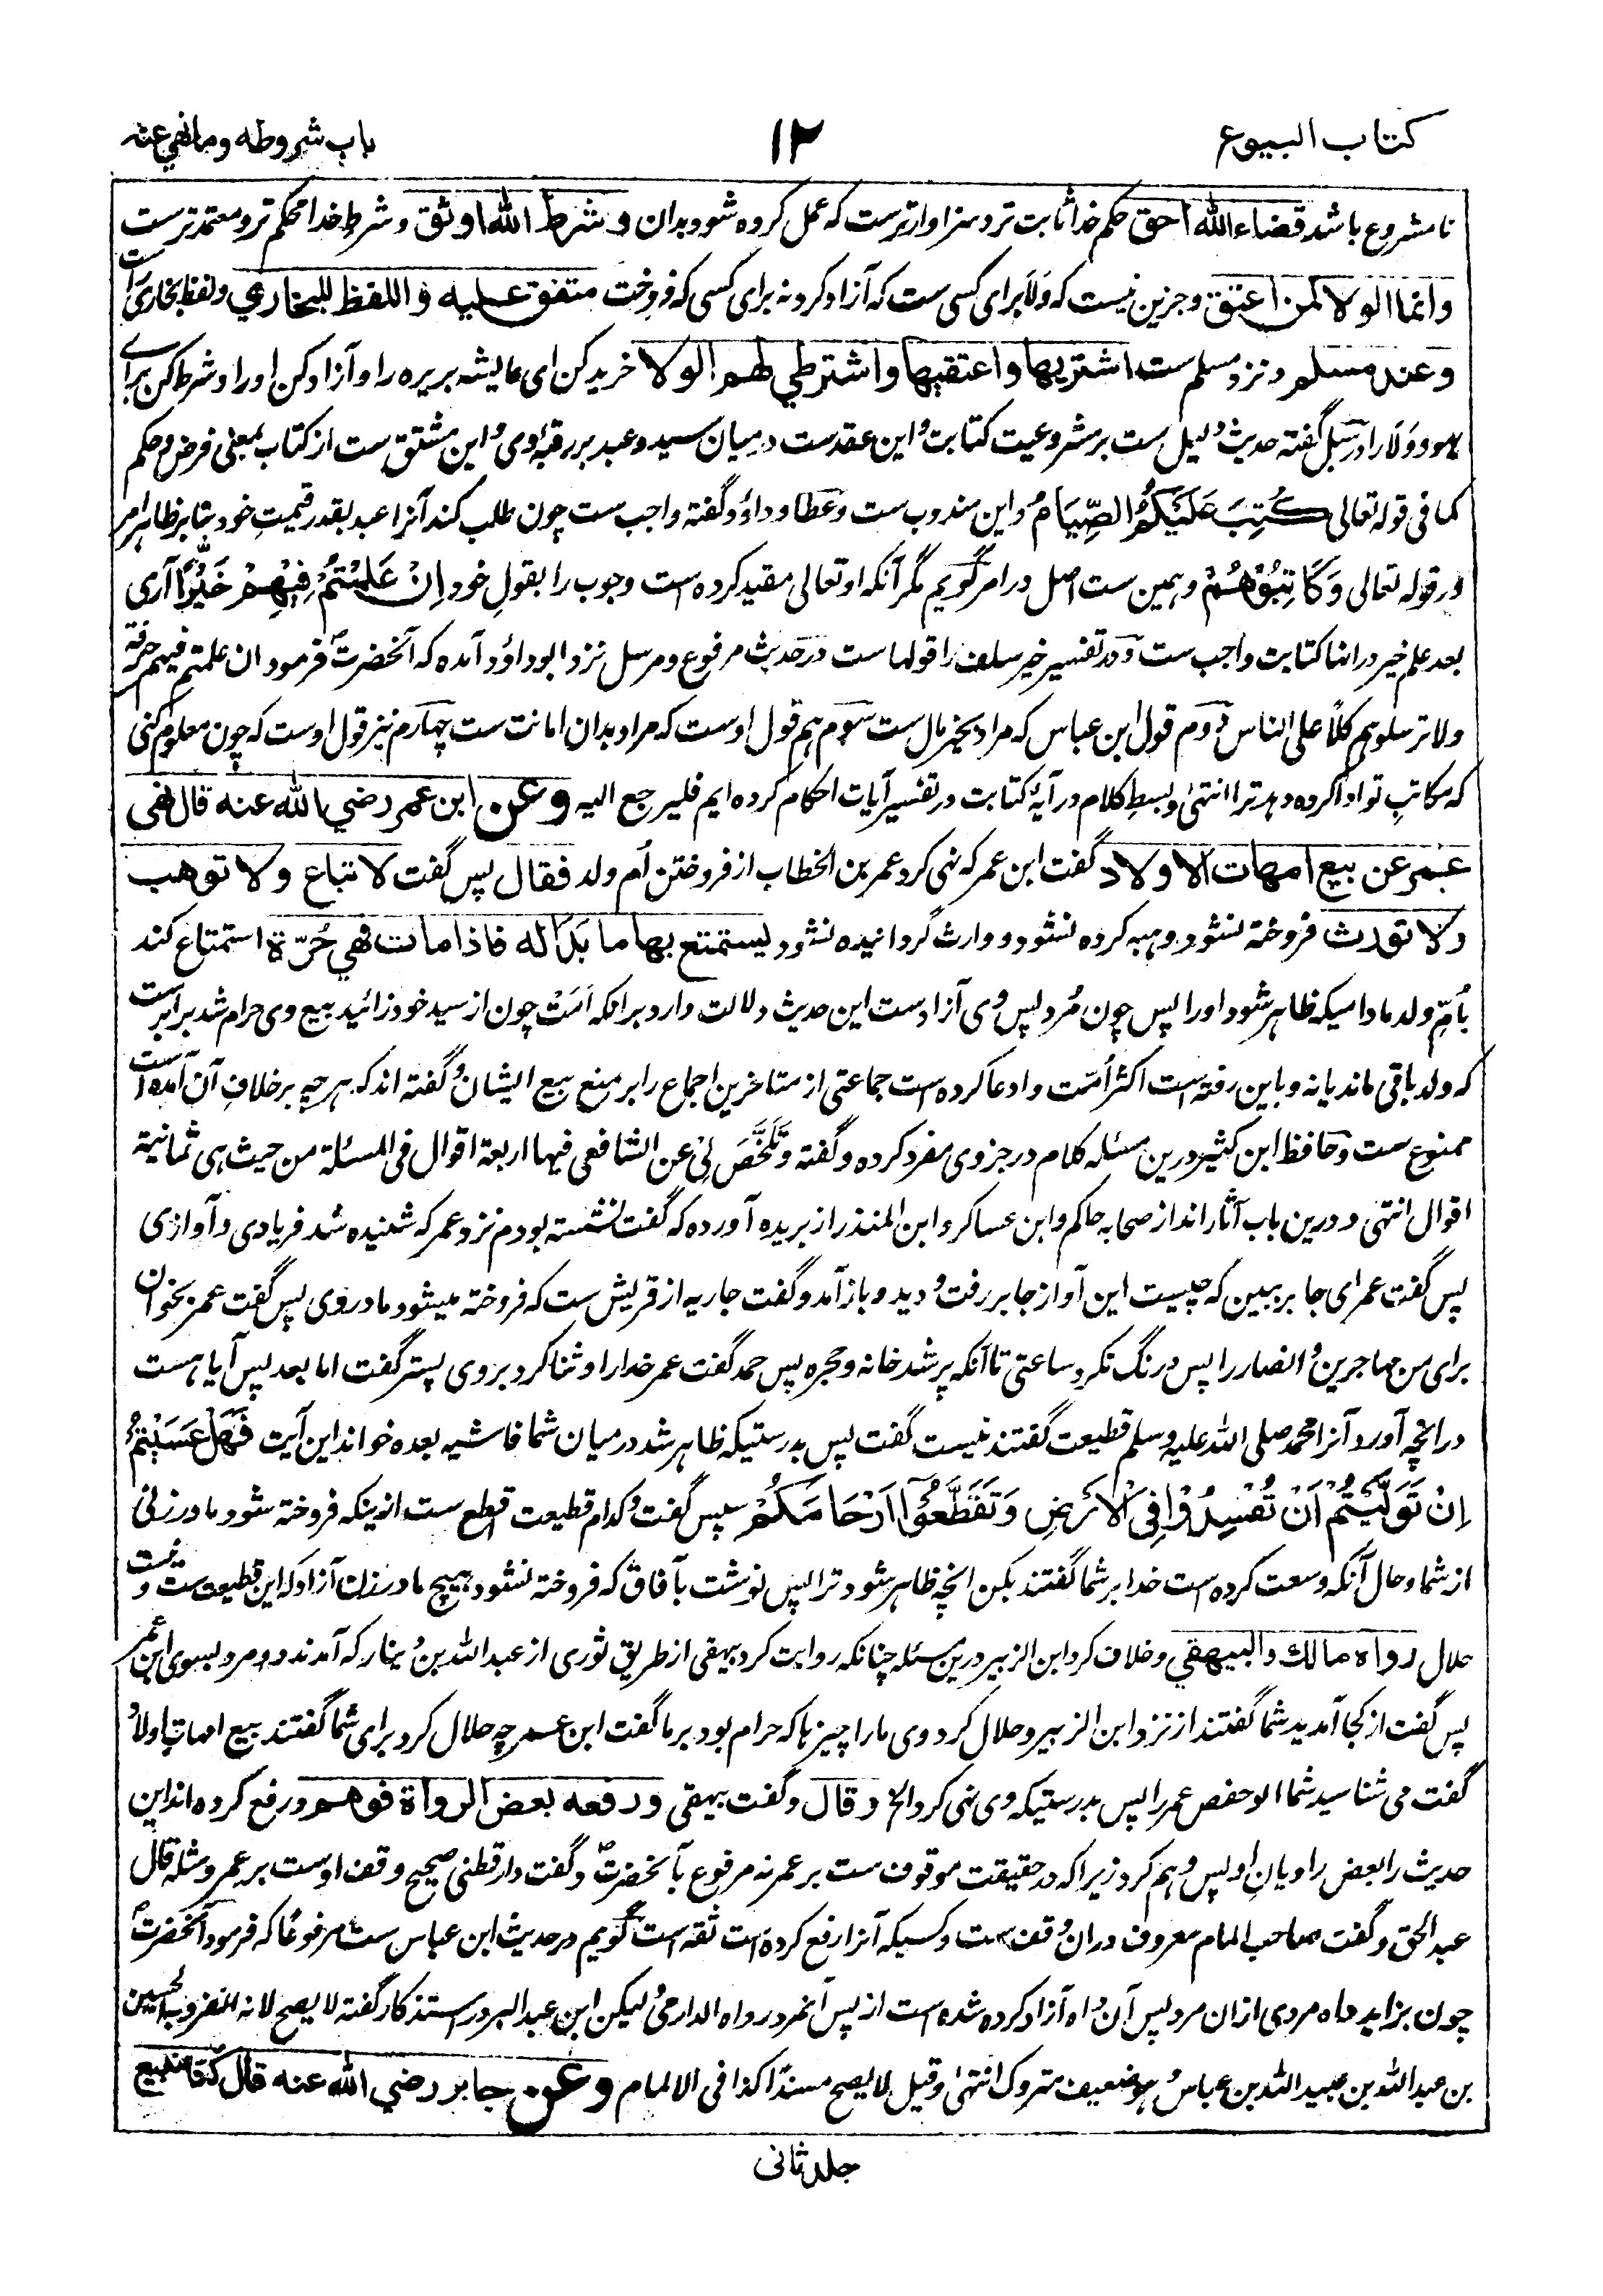 کتاب البیوع
۱۲
باب شروطه وما نهي عنه
نا مشروع باشد قضاء الله احق حکم خدا ثابت تر و سزاوار ترست که عمل کرده شود بدان و شرط الله اوثق و شرط خدا محکم تر و معتمد ترست
وانما الولا لمن اعتق وجز این نیست که وَلَا برای کسی ست که آزاد کرد نه برای کسی که فروخت متفق علیه و اللفظ للبخاري ولفظ بخاری است
وعند مسلم ونزد مسلم ست اشتریها واعتقیها واشترطي لهم الولا خرید کن ای عایشه بریره را و آزاد کن او را و شرط کن برای
یهود وَلَا را در سبل گفته حدیث دلیل ست بر مشروعیت کتابت و این عقدست در میان سید و عبد بر رقبهٔ وی و این مشتق ست از کتاب بمعنی فرض و حکم
کما فی قوله تعالی کُتِبَ عَلَیْکُمُ الصِّیَامُ و این مندوب ست و عطا و داؤد گفته واجب ست چون طلب کند آنرا عبد بقدر قیمت خود بنا بر ظاهر امر
در قوله تعالی وَکَاتِبُوْهُمْ و همین ست اصل در امر گویم مگر آنکه او تعالی مقید کرده است وجوب را بقول خود اِنْ عَلِمْتُمْ فِیْهِمْ خَیْرًا آری
بعد علم خیر در انها کتابت واجب ست و در تفسیر خیر سلف را قولهاست در حدیث مرفوع و مرسل نزد ابوداؤد آمده که آنحضرتؐ فرمود ان علمتم فیهم حرفة
ولا ترسلوهم کلًّا علی الناس دوم قول ابن عباس که مراد بخیر مال ست سوم هم قول اوست که مراد بدان امانت ست چهارم نیز قول اوست که چون معلوم کنی
که مکاتبِ تو ادا کرده دهد ترا انتهیٰ و بسطِ کلام در آیهٔ کتابت در تفسیر آیات احکام کرده ایم فلیرجع الیه وعن ابن عمر رضي الله عنه قال نهی
عمر عن بیع امهات الاولاد گفت ابن عمر که نهی کرد عمر بن الخطاب از فروختن اُم ولد فقال پس گفت لا تباع ولا توهب
ولا تورث فروخته نشود و هبه کرده نشود و وارث گردانیده نشود لیستمتع بها ما بَدَا له فاذا مات فهي حُرّة استمتاع کند
بأمِّ ولد ما دامیکه ظاهر شود او را پس چون مُرد پس وی آزادست این حدیث دلالت دارد بر انکه اَمَت چون از سید خود زائید بیع وی حرام شد برابر است
که ولد باقی ماند یا نه و باین رفته است اکثر اُمّت و ادعا کرده است جماعتی از متاخرین اجماع را بر منع بیع ایشان و گفته اند که هر چه بر خلافِ آن آمده است
ممنوع ست و حافظ ابن کثیر درین مسئله کلام در جزوی مفرد کرده و گفته وَتَلَخَّصَ لِیْ عن الشافعی فیها اربعة اقوال فی المسئلة من حیث هی ثمانیة
اقوال انتهی و درین باب آثار اند از صحابه حاکم و ابن عساکر و ابن المنذر از بریده آورده که گفت نشسته بودم نزد عمر که شنیده شد فریادی و آوازی
پس گفت عمر ای جابر ببین که چیست این آواز جابر رفت و دید و باز آمد و گفت جاریه از قریش ست که فروخته میشود مادر وی پس گفت عمر بخوان
برای من مهاجرین و انصار را پس درنگ نکرد ساعتی تا آنکه پر شد خانه و حجره پس حمد گفت عمر خدا را و ثنا کرد بر وی پستر گفت اما بعد پس آیا هست
در انچه آورد آنرا محمد صلی الله علیه وسلم قطیعت گفتند نیست گفت پس بدرستیکه ظاهر شد در میان شما فاشیه بعده خواند این آیت فَهَلْ عَسَیْتُمْ
اِنْ تَوَلَّیْتُمْ اَنْ تُفْسِدُوْا فِی الْاَرْضِ وَتُقَطِّعُوْٓا اَرْحَامَکُمْ سپس گفت و کدام قطیعت اقطع ست ازینکه فروخته شود مادر زنی
از شما و حال آنکه وسعت کرده است خدا بر شما گفتند بکن انچه ظاهر شود ترا پس نوشت بآفاق که فروخته نشود هیچ مادر زنان آزاد که این قطیعت ست و نیست
حلال رواه مالك والبیهقي و خلاف کرد ابن الزبیر درین مسئله چنانکه روایت کرد بیهقی از طریق ثوری از عبدالله بن دینار که آمدند دو مرد بسوی ابن عمر
پس گفت از کجا آمدید شما گفتند از نزد ابن الزبیر و حلال کرد وی ما را چیزها که حرام بود بر ما گفت ابن عمر چه حلال کرد برای شما گفتند بیع امهاتِ اولاد
گفت می شناسید شما ابوحفص عمر را پس بدرستیکه وی نهی کرد الخ وقال و گفت بیهقی ورفعه بعض الرواة فوهم و رفع کرده اند این
حدیث را بعض راویانِ او پس وهم کرد زیرا که در حقیقت موقوف ست بر عمر نه مرفوع بآنحضرتؐ و گفت دارقطنی صحیح وقف اوست بر عمر و مثله قال
عبد الحق و گفت صاحب المام معروف در ان وقف ست و کسیکه آنرا رفع کرده است ثقه است گویم در حدیث ابن عباس ست مرفوعًا که فرمود آنحضرتؐ
چون بزاید داه مردی ازان مرد پس آن داه آزاد کرده شده است از پس آنمرد رواه الدارمی و لیکن ابن عبدالبر در استذکار گفته لا یصح لانه انفرد به الحسین
بن عبدالله بن عبیدالله بن عباس و هو ضعیف متروک انتهیٰ و قیل لا یصح مسندًا کذا فی الالمام وعن جابر رضي الله عنه قال کُنّا نبیع
جلد ثانی